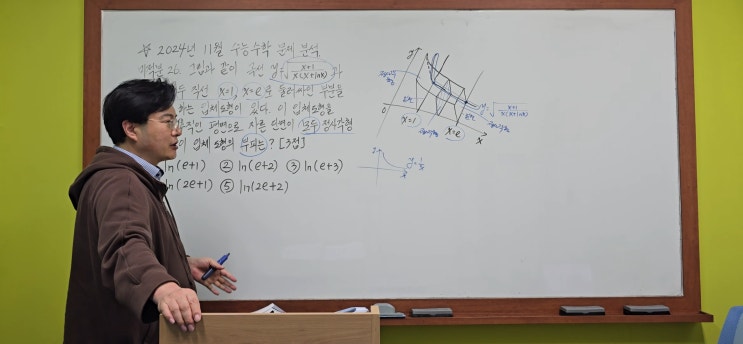 ※ 2024년 11월 수능수학 문제 분석
미적분 26. 그림과 같이 곡선 y=√(x+1)/(x(x+lnx)) 과
직선 x=1, x=e로 둘러싸인 부분을
하는 입체도형이 있다. 이 입체도형을
직인 평면으로 자른 단면이 모두 정사각형
이 입체도형의 부피는? [3점]
ln(e+1) ② ln(e+2) ③ ln(e+3)
ln(2e+1) ⑤ ln(2e+2)
y
0
x=1
x=e
x
y=√(x+1)/(x(x+lnx))
y
x
y=1/x